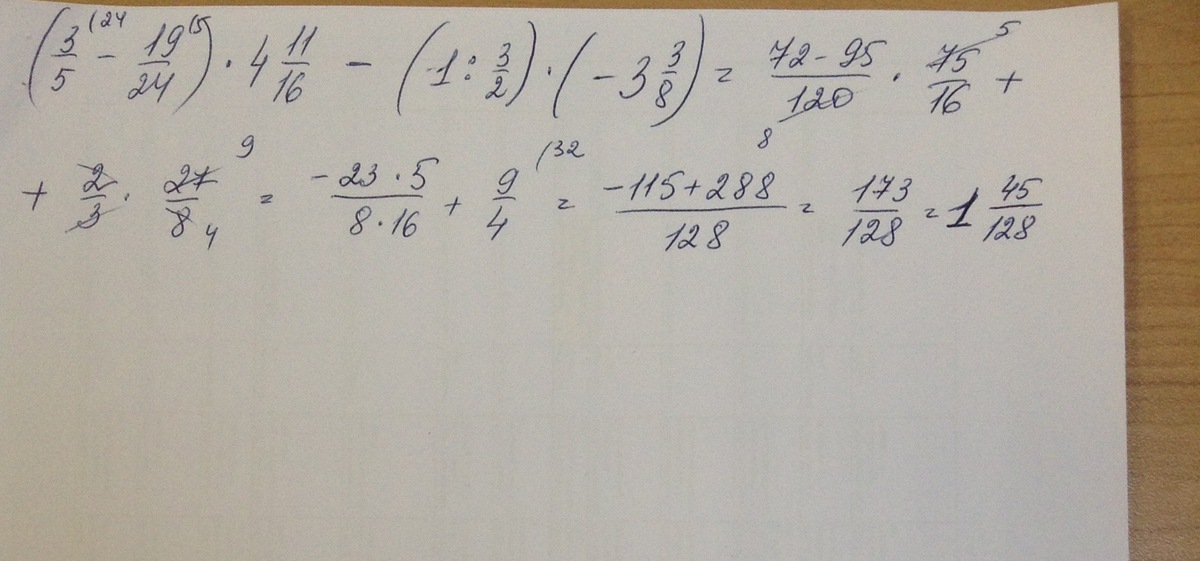 (3/5 (24 − 19/24 (5) · 4 11/16 − (-1 : 3/2) · (−3 3/8) = 72 − 95/120 8 · 75/16 5 +
+ 2/3 · 27/8 9 4 = −23 · 5/8 · 16 + 9/4 (32 = −115 + 288/128 = 173/128 = 1 45/128